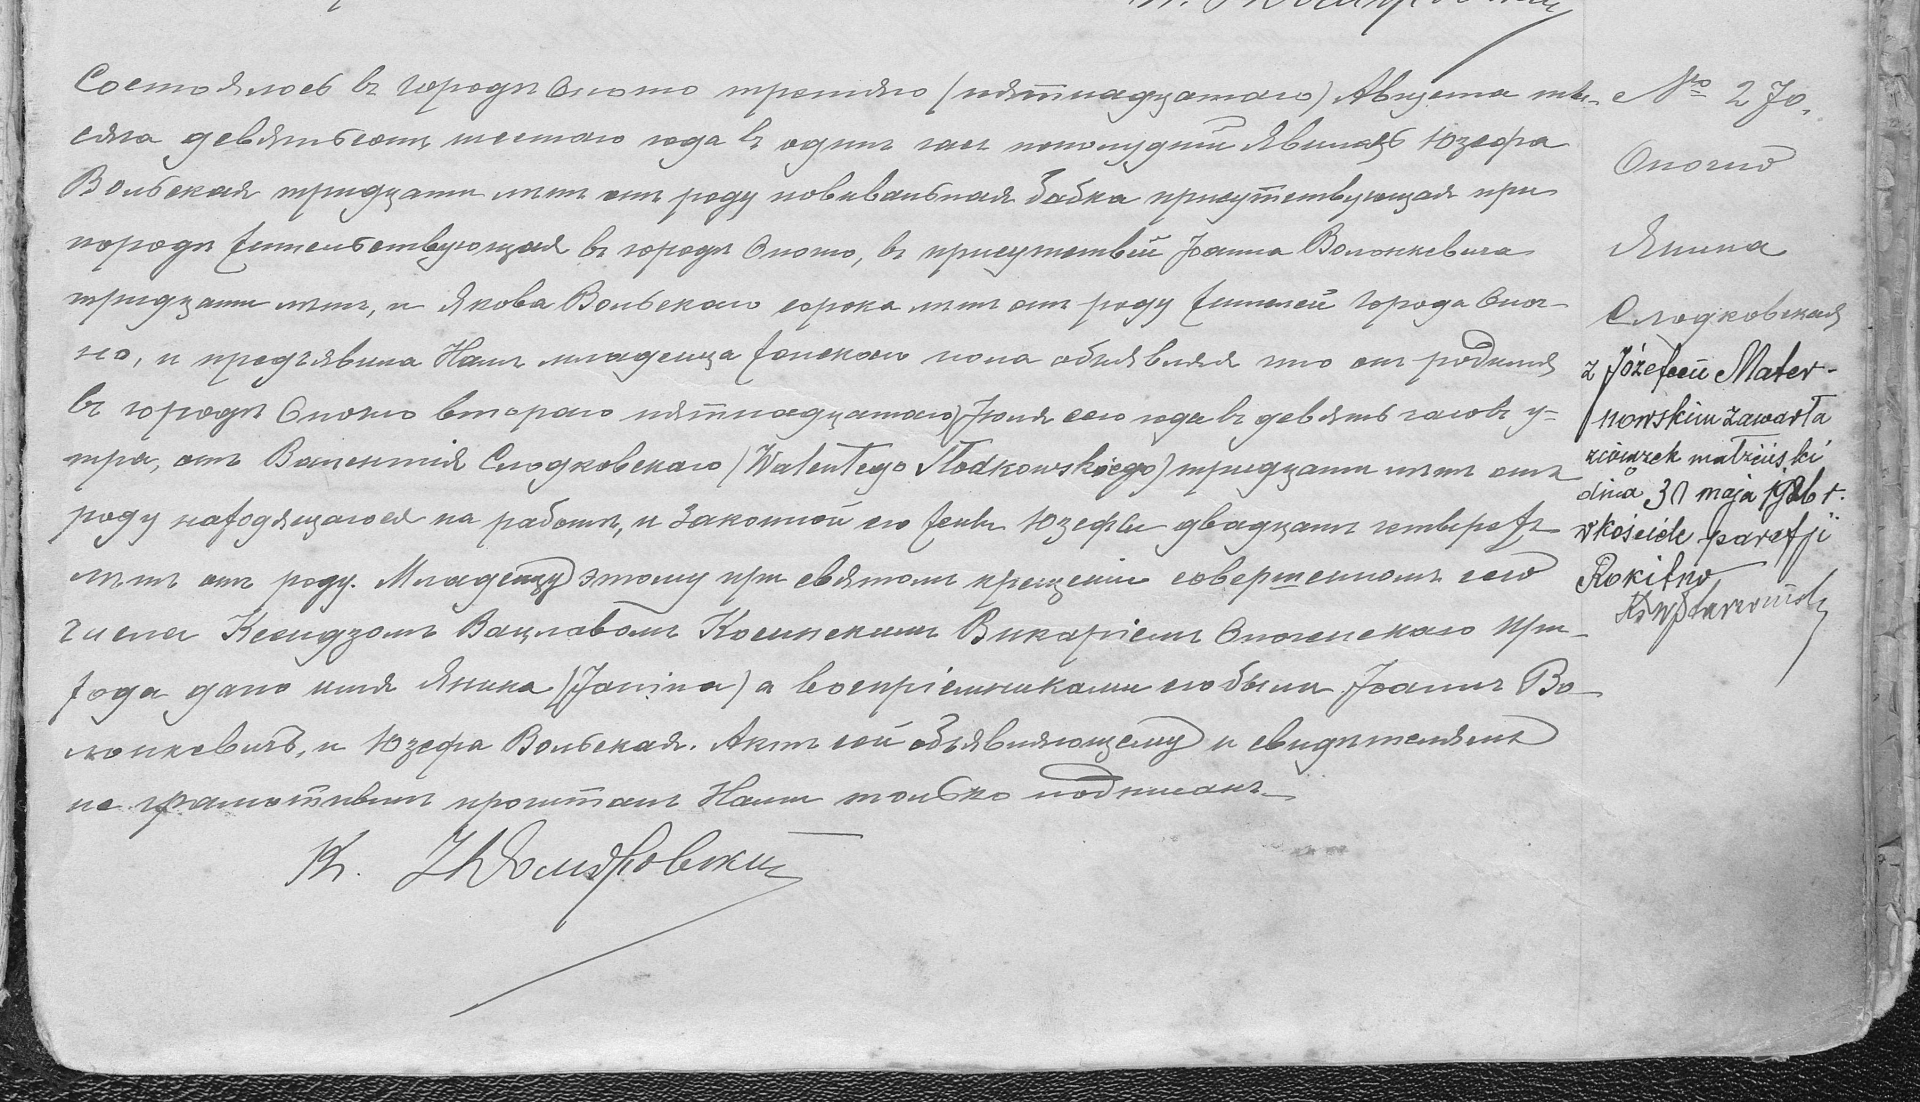 Состоялось въ городѣ Опочно третьяго (пятнадцатаго) Августа мѣ-
сяца девятьсотъ шестаго года въ одинъ часъ пополудни Явилась Юзефа
Вольская тридцати лѣтъ отъ роду повивальная бабка присутствующая при
породѣ жительствующая въ городѣ Опочно, въ присутствіи Іоанна Волонкевича
тридцати лѣтъ, и Якова Вольскаго сорока лѣтъ отъ роду жителей города Опоч-
но, и предъявила Намъ младенца женскаго пола объявляя что онъ родился
въ городѣ Опочно втораго (пятнадцатаго) Іюля сего года въ девять часовъ у-
тра, отъ Валентія Слодковскаго (Walentego Słodkowskiego) тридцати лѣтъ отъ
роду находящагося на работѣ, и законной его жены Юзефы двадцати четырехъ
лѣтъ отъ роду. Младенцу этому при святомъ крещеніи совершенномъ сего
числа Ксендзомъ Вацлавомъ Косинскимъ Викаріемъ Опоченскаго При-
хода дано имя Янина (Janina) а воспріемниками его были Іоаннъ Во-
лонкевичъ, и Юзефа Вольская. Актъ сей объявляющему и свидѣтелямъ
не грамотнымъ прочитанъ Нами только подписанъ
Кс.
№ 270.
Опочно
Янина
Слодковская
z Józefem Mater-
nowskim zawarła
związek małżeński
dnia 30 maja 1926 r.
w kościele parafji
Rokitno